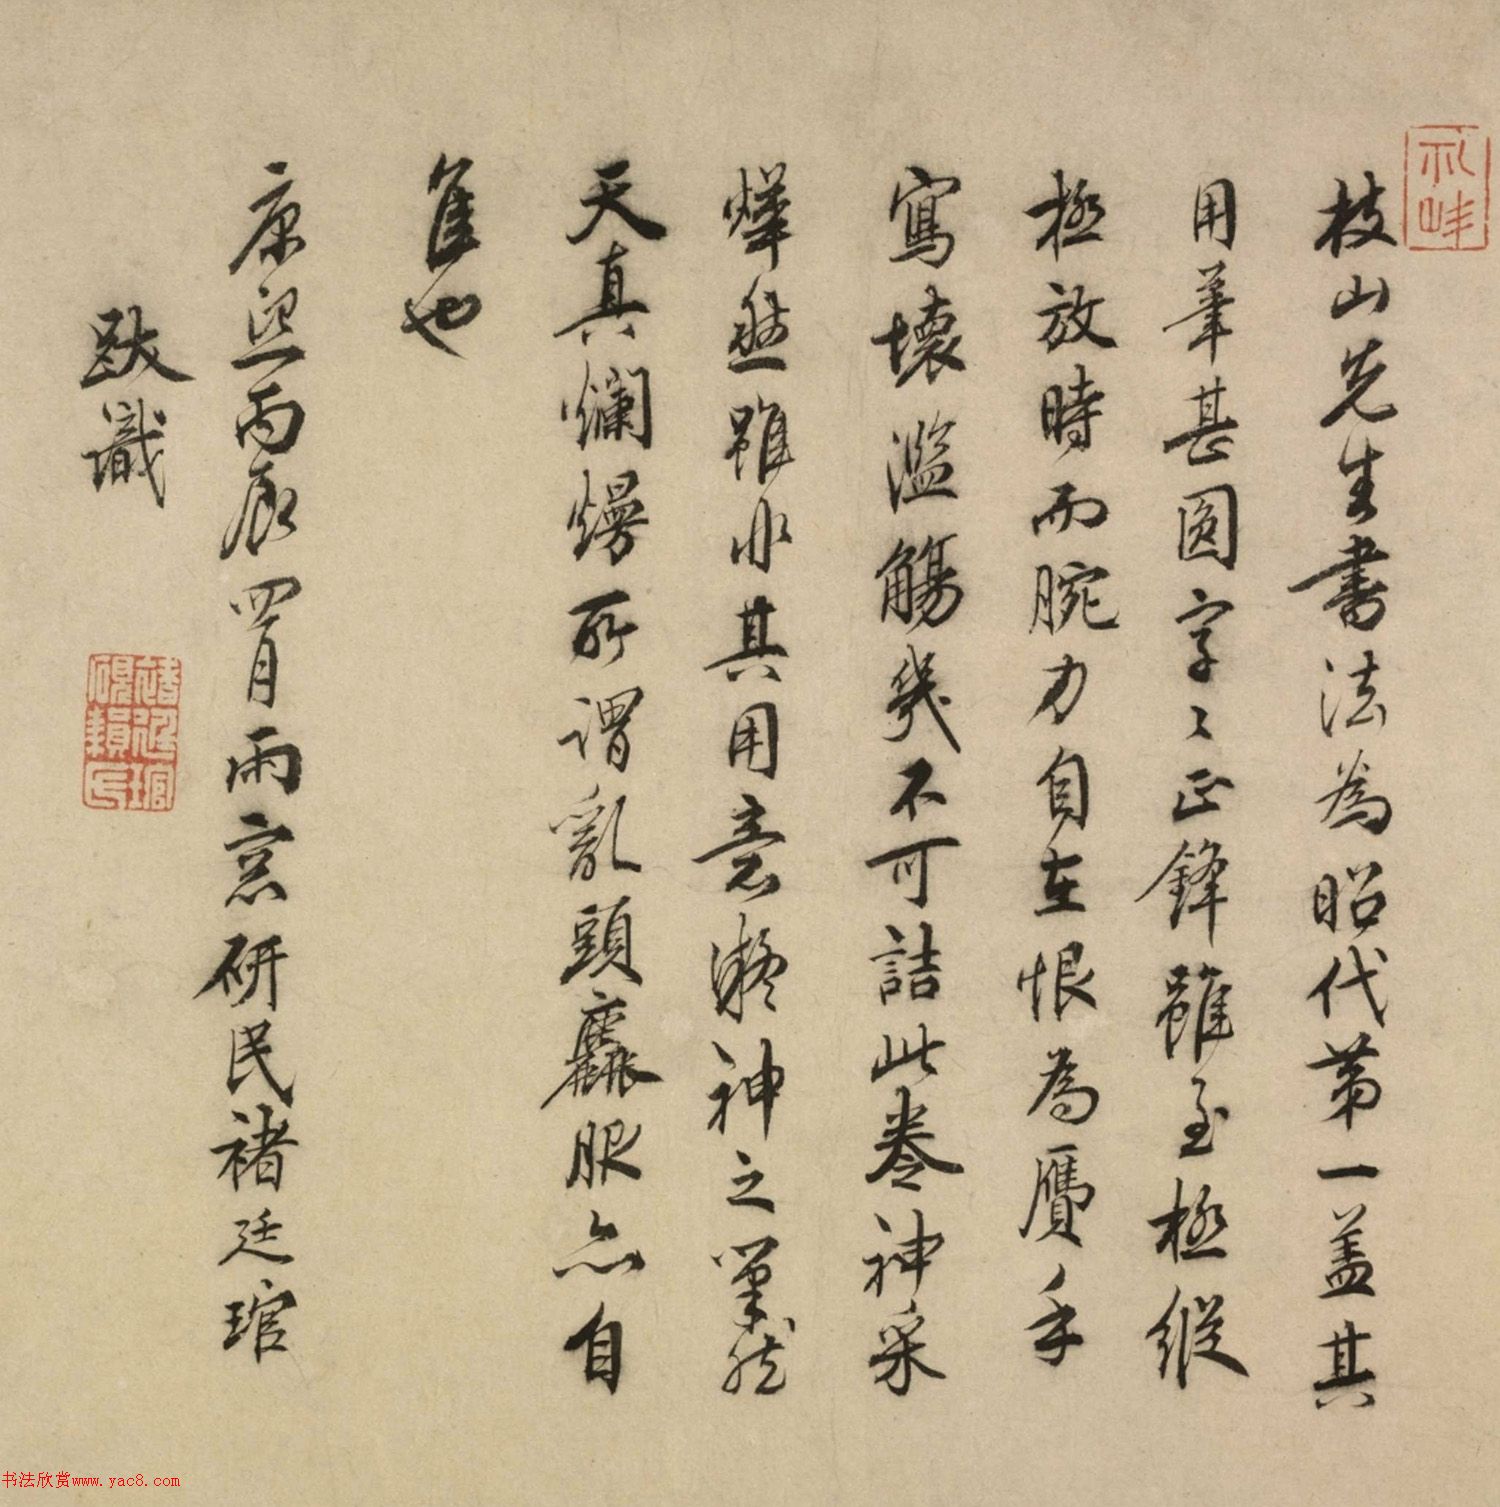 枝山先生書法為昭代第一蓋其
用筆甚圓字〻正鋒雖至極縱
極放時而腕力自在恨為贗手
寫壞濫觴幾不可詰此卷神采
燁然雖非其用意凝神之筆然
天真爛熳所謂亂頭麤服亦自
佳也
康熙丙辰四月雨窓研民褚廷琯
跋識
书法欣赏www.yac8.com